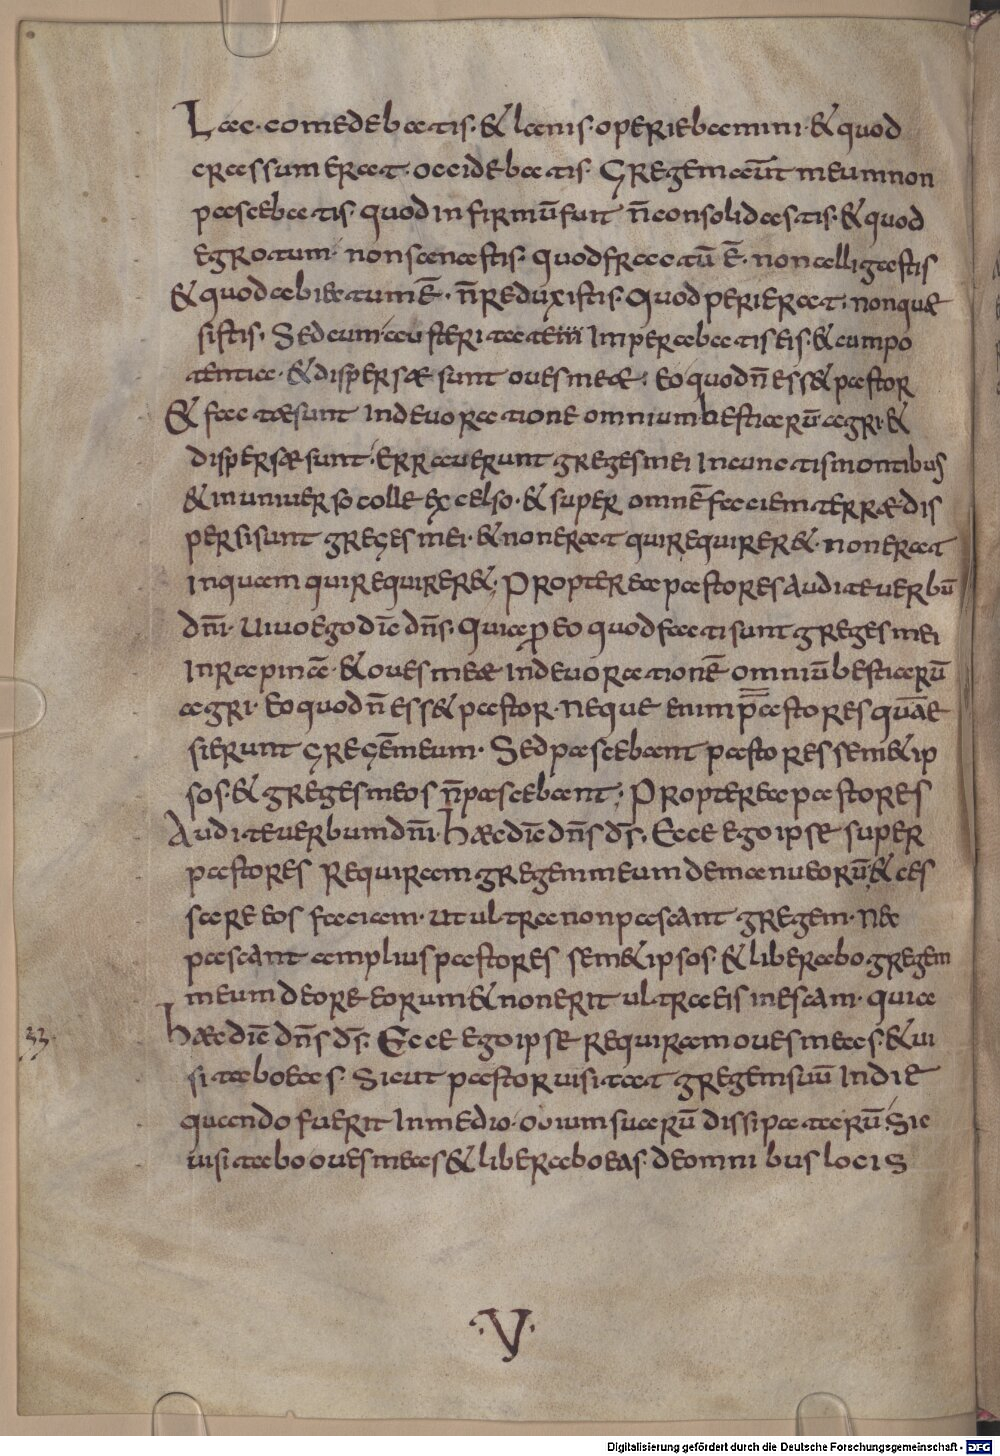 Lac comedebatis · & lanis operiebamini · & quod
crassum erat · occidebatis · Gregem aūt meum non
pascebatis · quod infirmū fuit n̄ consolidastis · & quod
egrotum · non sanastis · quod fractū ē · non alligastis
& quod abiectum ē · n̄ reduxistis · Quod perierat · non quae
sistis · Sed cum austeritate Imperabatis eis · & cum po
tentia · & dispersae sunt oves meae · eo quod n̄ ess& pastor
& factae sunt In devoratione omnium bestiarū agri · &
dispersae sunt · Erraverunt greges mei In cunctis montibus
& in universo colle excelso · & super omnē faciem terrae dis
persi sunt greges mei · & non erat qui requirer& · non erat
Inquam qui requirer& · Propterea pastores audite verbū
dn̄i · Vivo ego dic̄ dn̄s · Quia ꝓ eo quod facti sunt greges mei
In rapinā · & oves meae In devorationē omniū bestiarū
agri · eo quod n̄ ess& pastor · Neque enim pastores quae
sierunt gregēm meum · Sed pascebant pastores sem&ip
sos · & greges meos n̄ pascebant · Propterea pastores
Audite verbum dn̄i · haec dic̄ dn̄s d̄s · Ecce ego ipse super
pastores Requiram gregem meum de manu eorū · & ces
sare eos faciam · ut ultra non pascant gregem · Nec
pascant amplius pastores sem&ipsos · & liberabo gregem
meum de ore eorum & non erit ultra eis in escam · quia
haec dic̄ dn̄s d̄s · Ecce ego ipse requiram oves meas · & vi
sitabo eas · Sicut pastor visitat gregem suū In die
quando fuerit In medio ovium suarū dissipatarū · Sic
visitabo oves meas & liberabo eas · de omnibus locis
33
· V ·
Digitalisierung gefördert durch die Deutsche Forschungsgemeinschaft - DFG